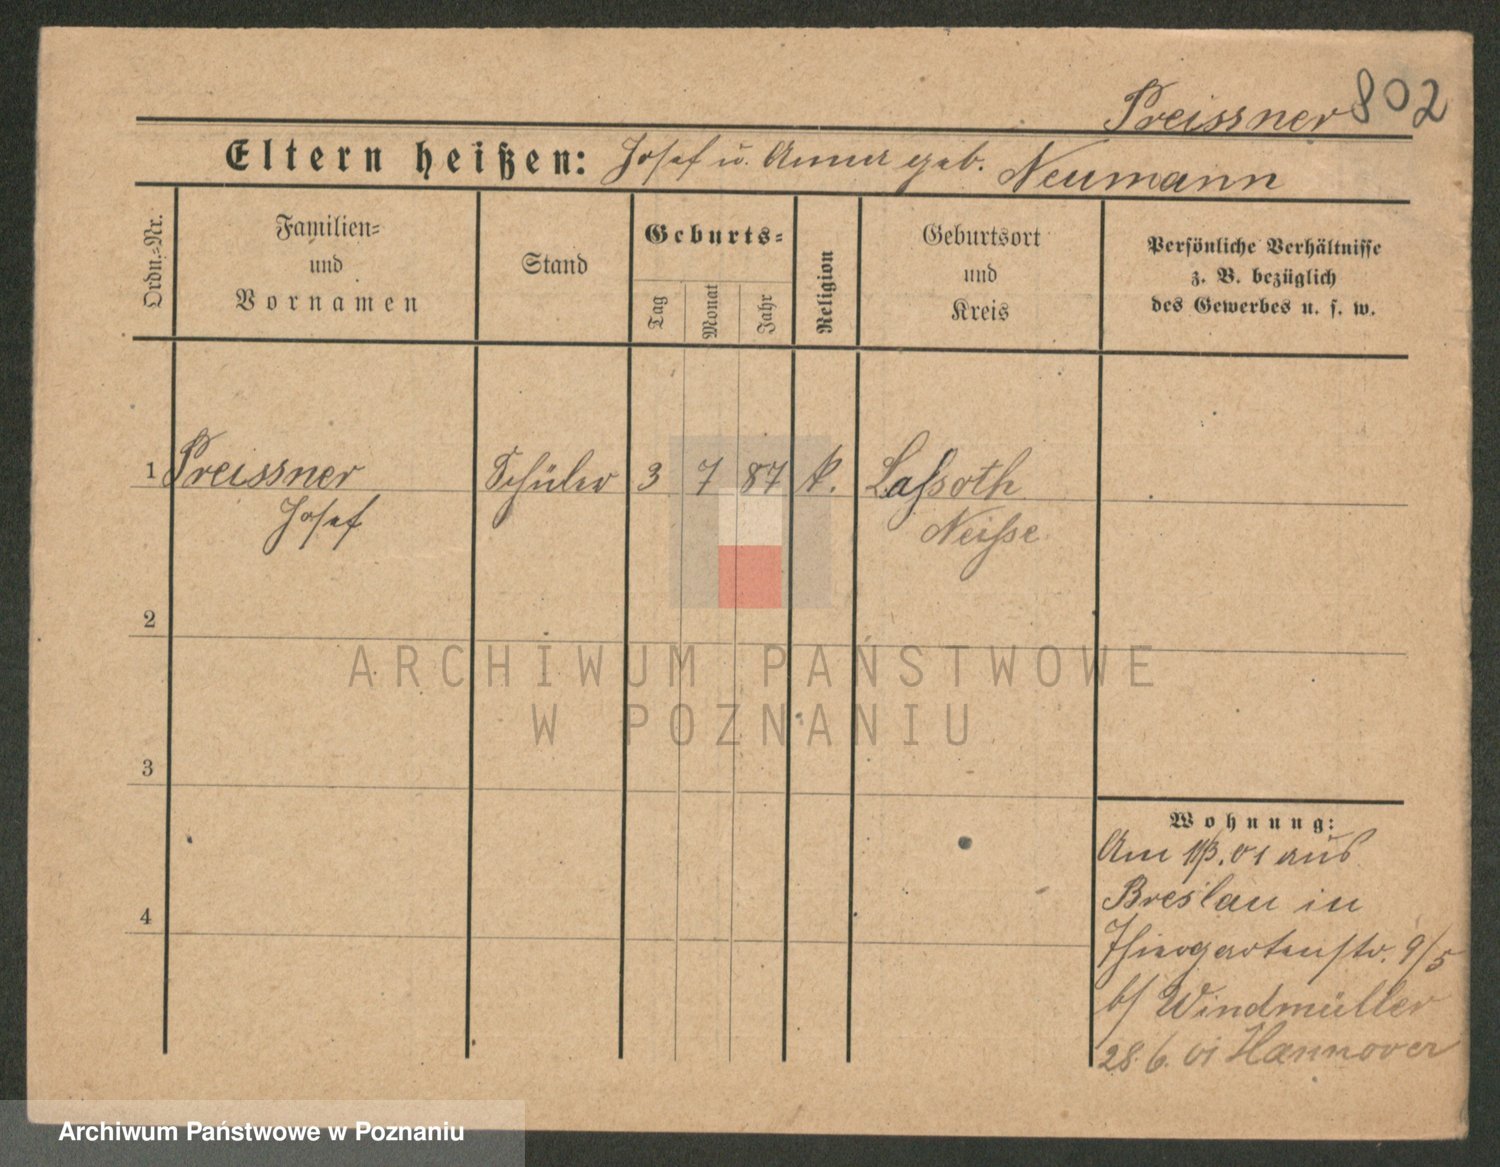 Preissner 802
Eltern heißen: Josef u. Anna geb. Neumann
Ordn.-Nr.
Familien-
und
Vornamen
Stand
Geburts-
Tag
Monat
Jahr
Religion
Geburtsort
und
Kreis
Persönliche Verhältnisse
z. B. bezüglich
des Gewerbes u. s. w.
1 Preissner Schüler 3 7 87 k. Lassoth
Josef Neisse
2
ARCHIWUM PAŃSTWOWE
W POZNANIU
3
Wohnung:
Am 01 aus
Breslau in
4
Thiergartenstr. 9/5
b/ Windmüller
28.6.01 Hannover
Archiwum Państwowe w Poznaniu